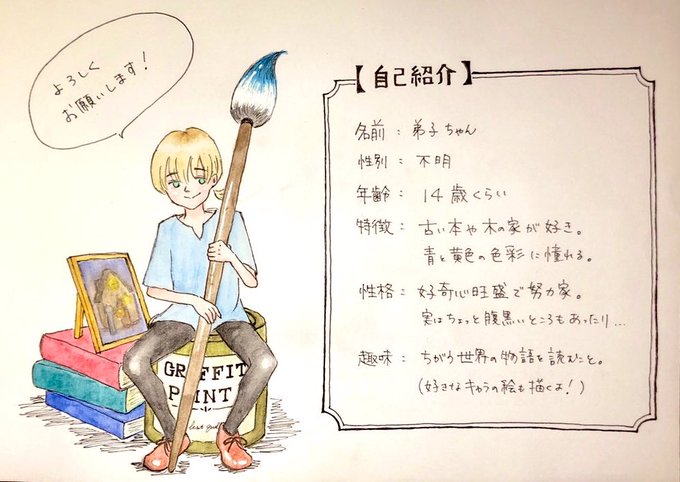 よろしく
お願いします!
【自己紹介】
名前 : 弟子ちゃん
性別 : 不明
年齢 : 14歳くらい
特徴 : 古い本や木の家が好き。
青と黄色の色彩に憧れる。
性格 : 好奇心旺盛で努力家。
実はちょっと腹黒いところもあったり…
趣味 : ちがう世界の物語を読むこと。
(好きなキャラの絵も描くよ!)
GRAFFIT
PAINT